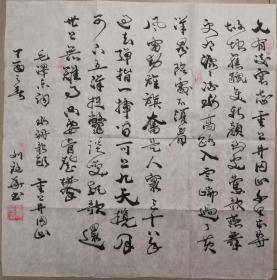 久有凌云志重上井冈山千里来寻
故地舊貌變新颜到處莺歌燕舞
更有潺潺流水高路入雲端過了黄
洋界险處不須看
風雷動旌旗奮是人寰三十八年
過去弹指一挥间可上九天揽月
可下五洋捉鳖谈笑凯歌還
世上無難事只要肯登攀
毛泽东词水调歌头重上井冈山
丁酉之春 刘书